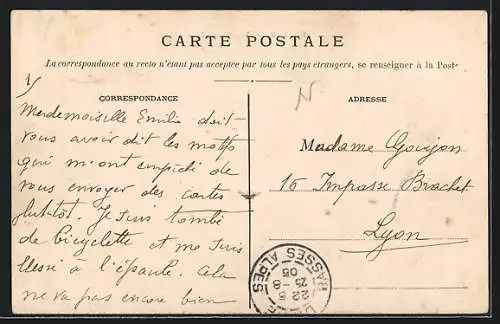 CARTE POSTALE
La correspondance au recto n'étant pas acceptée par tous les pays étrangers, se renseigner à la Poste
CORRESPONDANCE
Mesdemoiselle Emilie doit
vous avoir dit les motifs
qui m'ont empêché de
vous envoyer des cartes
plutôt. Je suis tombé
de bicyclette et me suis
blessé à l'épaule. Cela
ne va pas encore bien
ADRESSE
Madame Goujon
16 Impasse Brachet
Lyon
BASSES ALPES
22 5
25 - 8
05